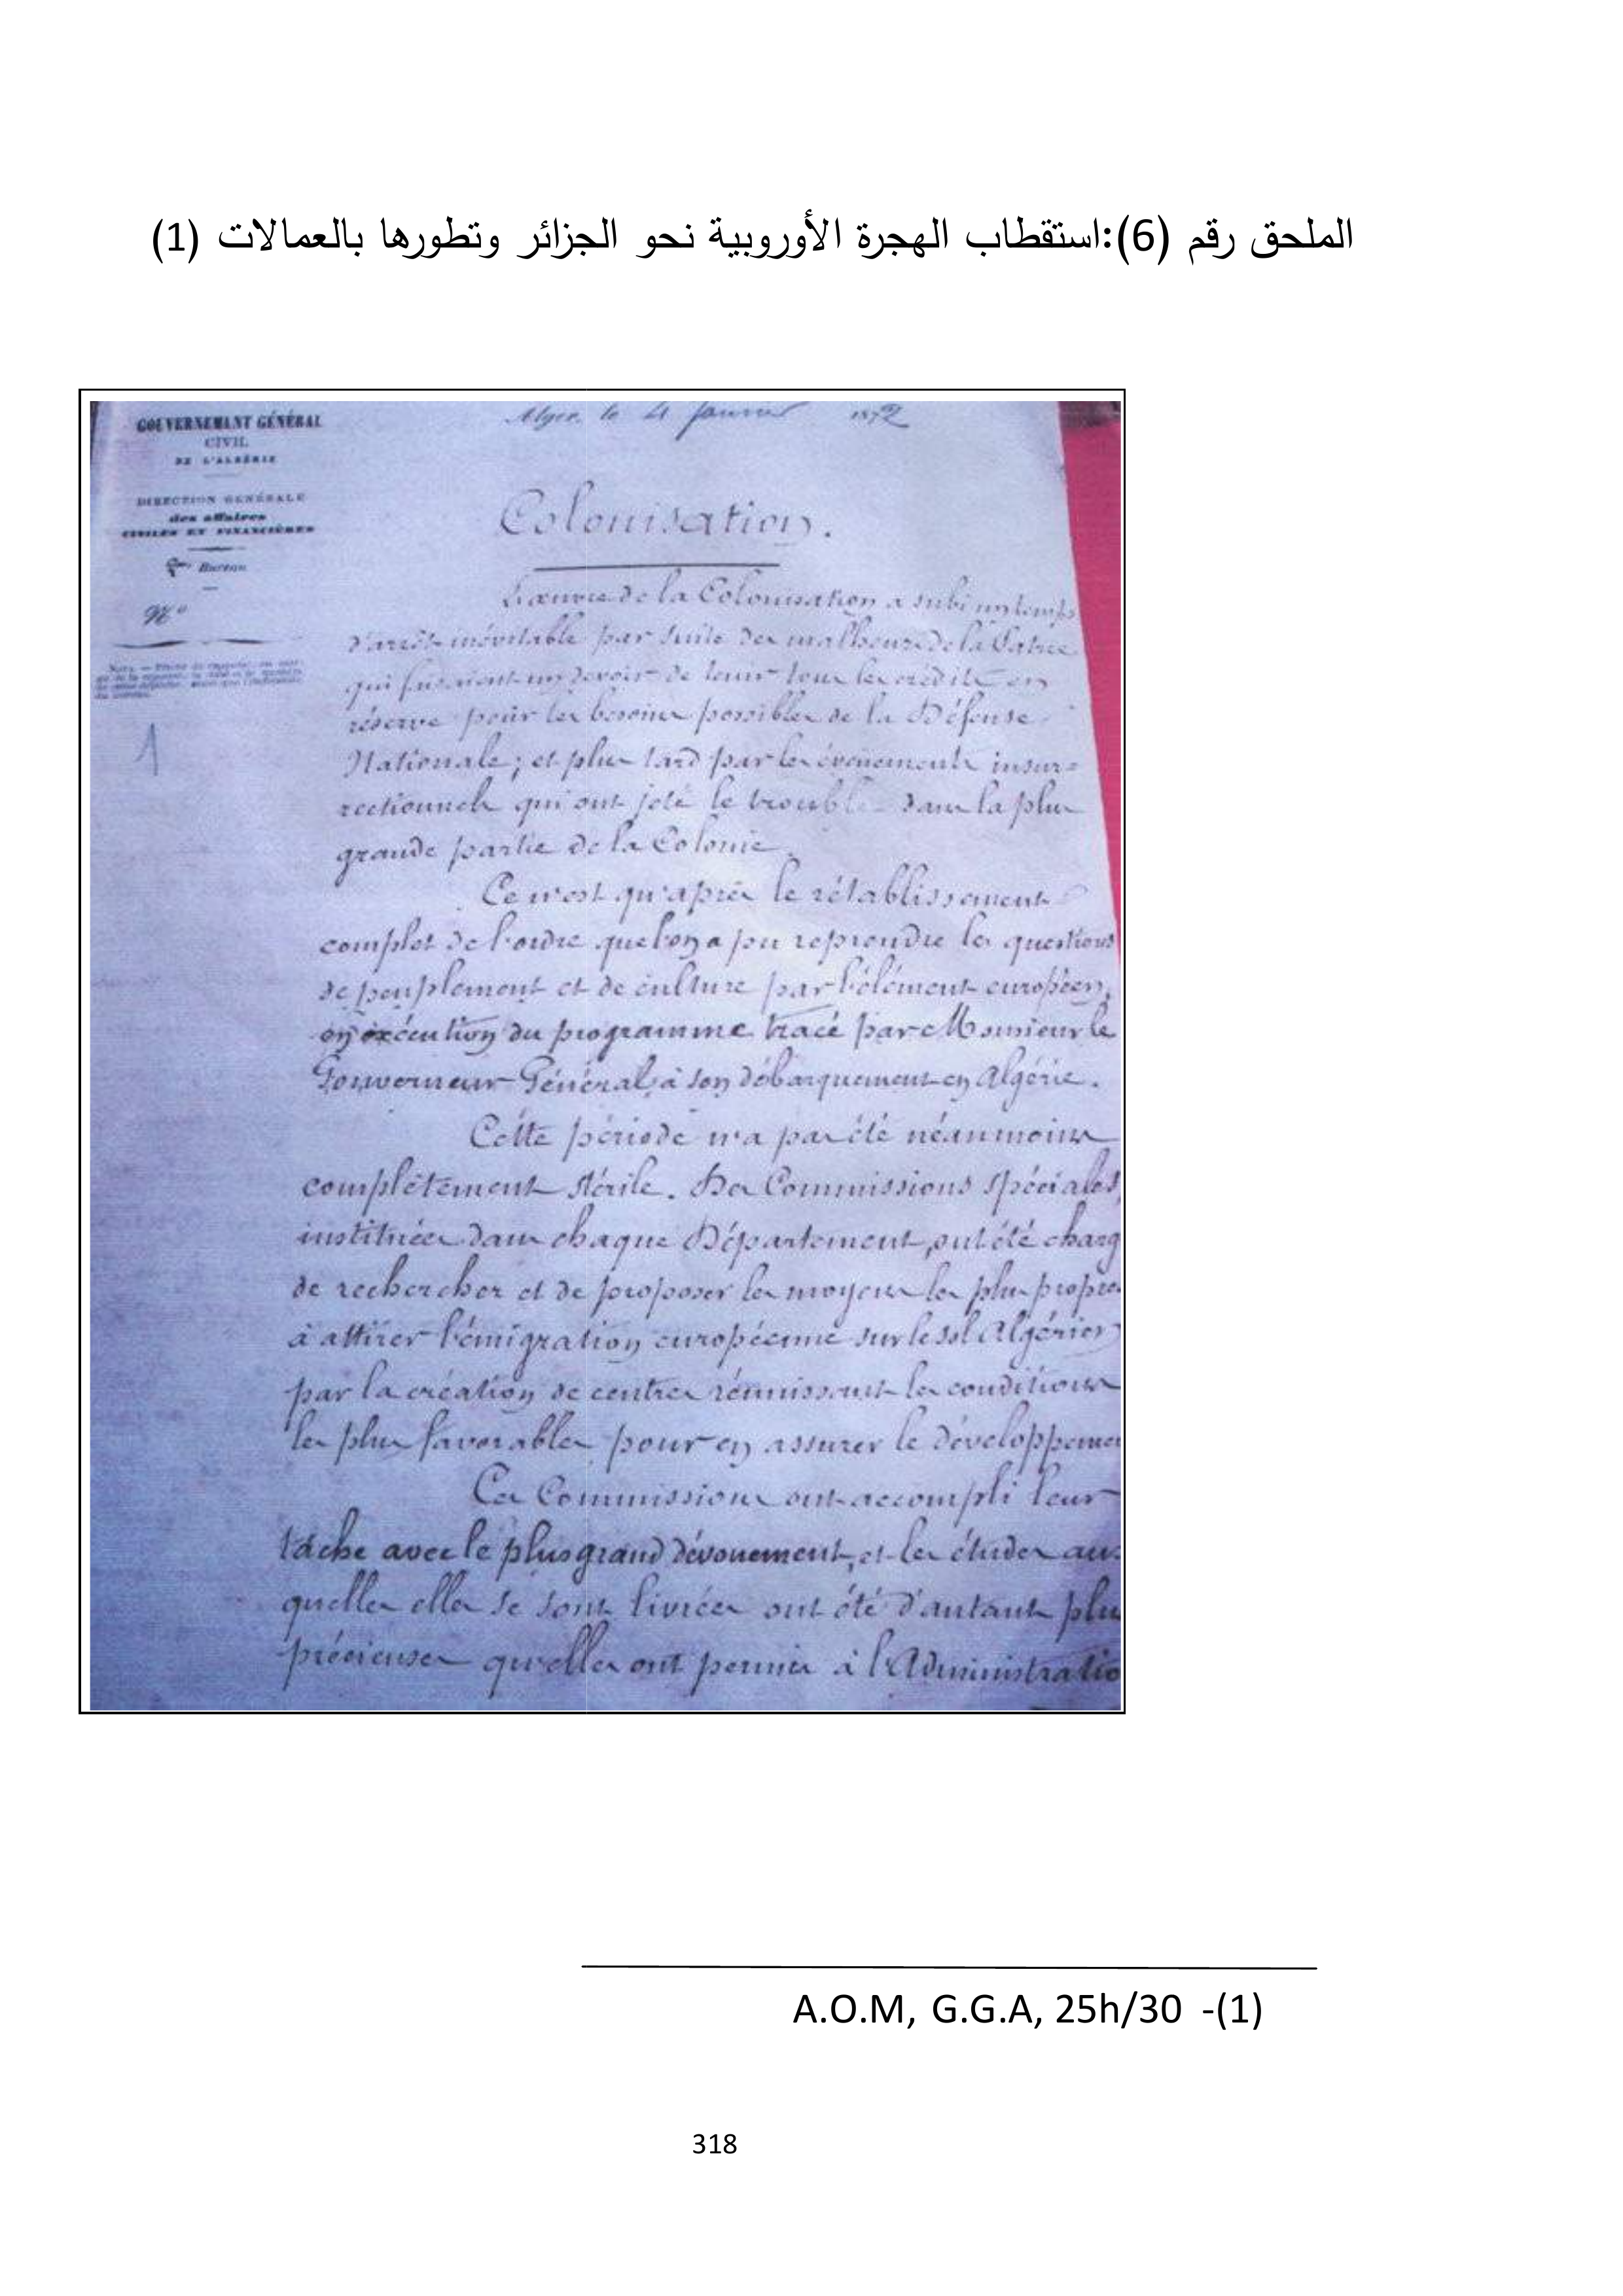 الملحق رقم (6):استقطاب الهجرة الأوروبية نحو الجزائر وتطورها بالعمالات (1)
GOUVERNEMENT GÉNÉRAL
CIVIL
DE L'ALGÉRIE
DIRECTION GÉNÉRALE
des affaires
CIVILES ET FINANCIÈRES
Bureau
N°
1
Alger, le 4 Janvier 1872
Colonisation.
L'œuvre de la Colonisation a subi un temps
d'arrêt inévitable par suite des malheurs de la Patrie
qui faisaient un devoir de tenir tous les crédits en
réserve pour les besoins possibles de la Défense
Nationale ; et plus tard par les évènements insur=
rectionnels qui ont jeté le trouble dans la plus
grande partie de la Colonie.
Ce n'est qu'après le rétablissement
complet de l'ordre que l'on a pu reprendre les questions
de peuplement et de culture par l'élément européen,
en exécution du programme tracé par Monsieur le
Gouverneur Général à son débarquement en Algérie.
Cette période n'a pas été néanmoins
complètement stérile. Des Commissions spéciales,
instituées dans chaque Département, ont été charg
de rechercher et de proposer les moyens les plus propres
à attirer l'émigration européenne sur le sol Algérien
par la création de centres réunissant les conditions
les plus favorables pour en assurer le développemen
Ces Commissions ont accompli leur
tâche avec le plus grand dévouement, et les études aux
quelles elles se sont livrées ont été d'autant plus
précieuses qu'elles ont permis à l'Administratio
A.O.M, G.G.A, 25h/30 -(1)
318